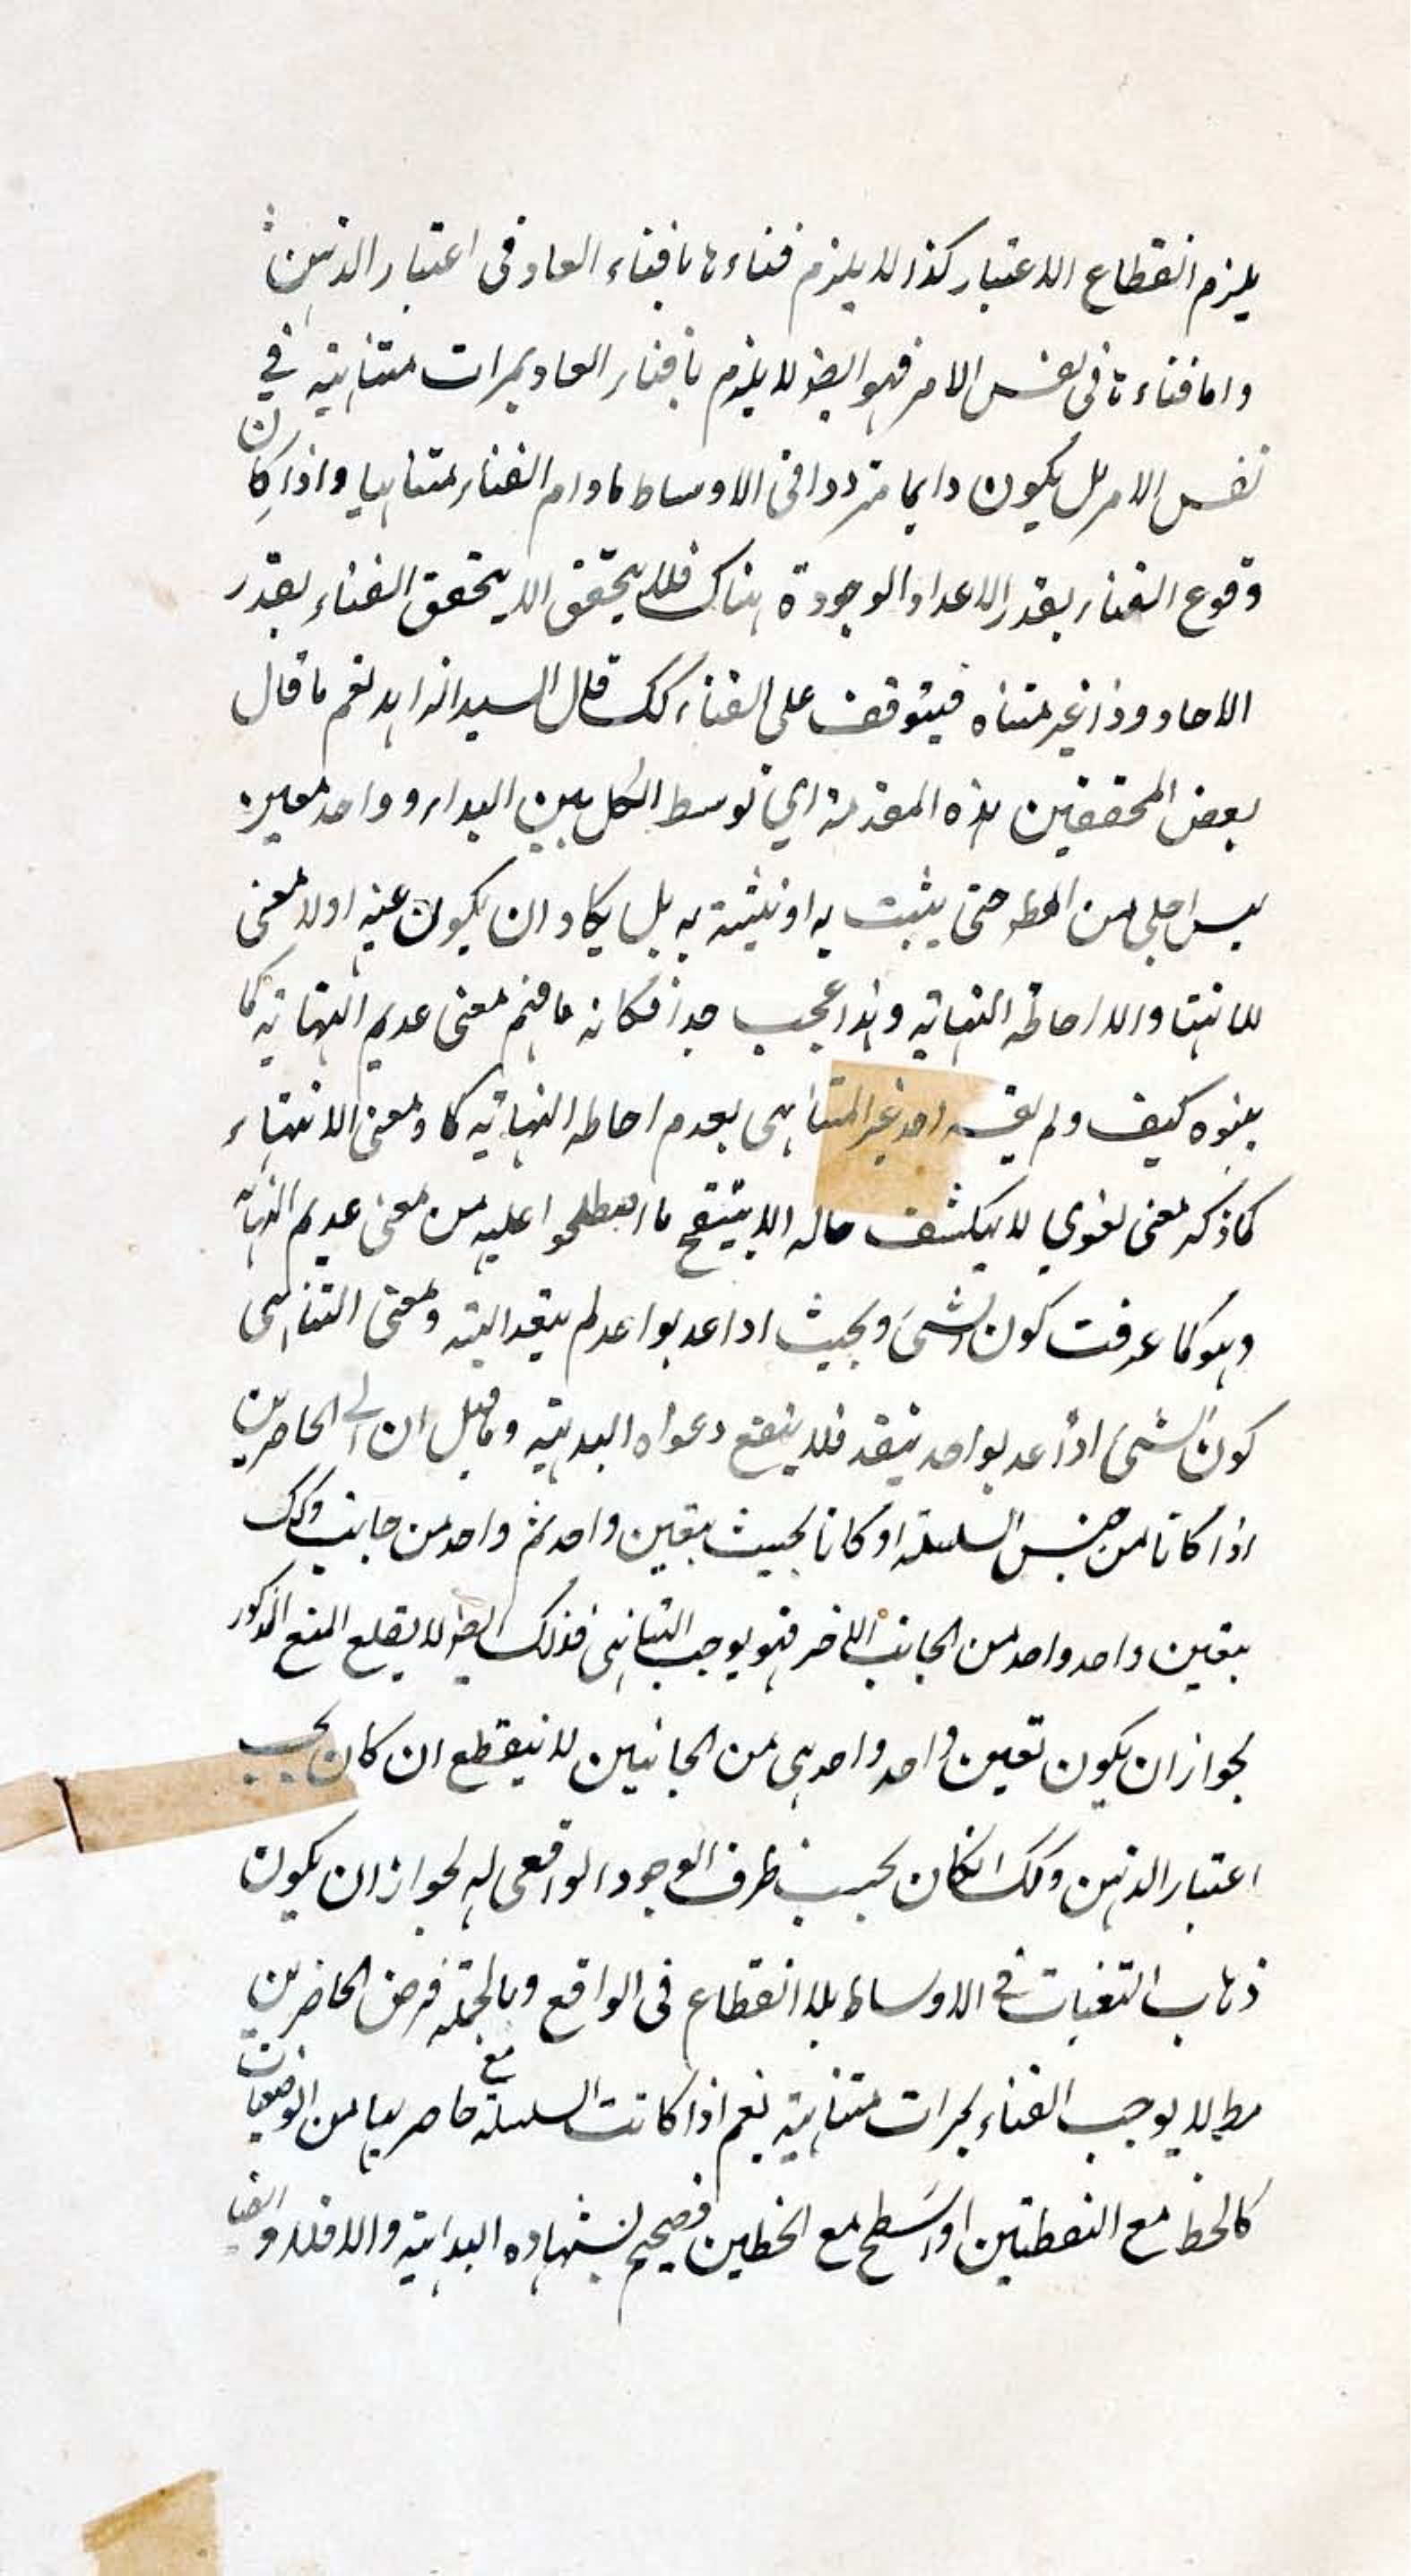 يلزم انقطاع الاعتبار كذا لا يلزم فناءها بافناء العاد فى اعتبار الذهن
واما فناءها فى نفس الامر فهو ايضا لا يلزم بافناء العاد بمرات متناهية فى
نفس الامر بل يكون دايما مترددا فى الاوساط مادام الفناء متناهيا واذا كان
وقوع الفناء بقدر الاعداد الموجودة هناك فلا يتحقق الا يتحقق الفناء بقدر
الاحاد وذا غير متناه فيتوقف على الفناء كك قال السيد الزاهد نعم ما قال
بعض المحققين هذه المقدمة اي توسط الكل بين المبدا و واحد معين
ليس اجلى من المط حتى يثبت به او ينبه به بل يكاد ان يكون عينه اولا معنى
للانتها والا احاطة النهاية وهذا عجب جدا فكانه ما فهم معنى عديم النهاية كما
كيف ولم احد غير المتناهى بعدم احاطه النهاية كا ومعنى الانتهاء
كما ذكر معنى لغوي لا ينكشف حاله الا بتنقيح ما اصطلحوا عليه من معنى عديم النهاية
وهو كما عرفت كون الشىء بحيث اذا عد بواعد لم ينفد البتة ومعنى التناهى
كون الشىء اذا عد بواحد ينفد فلا ينفع دعواه البديهة وما قيل ان الحاصرين
اذا كانا من جنس السلسلة او كانا بحيث يتعين واحد ثم واحد من جانب وكك
يتعين واحد واحد من الجانب الاخر فهو يوجب التناهى فذلك ايضا لا يقلع المنع المذكور
لجواز ان يكون تعين واحد واحد من الجانبين لا ينقطع ان كان بحسب
اعتبار الذهن وكك انكان بحسب ظرف الوجود الواقعى له لجواز ان يكون
ذهاب التعينات فى الاوساط بلا انقطاع فى الواقع وبالجملة فرض الحاصرين
مط لا يوجب الفناء بمرات متناهية نعم اذا كانت السلسلة مع حاصريها من الوضعيات
كالخط مع النقطتين او السطح مع الخطين فصحيح لشهادة البداهة والا فلا و